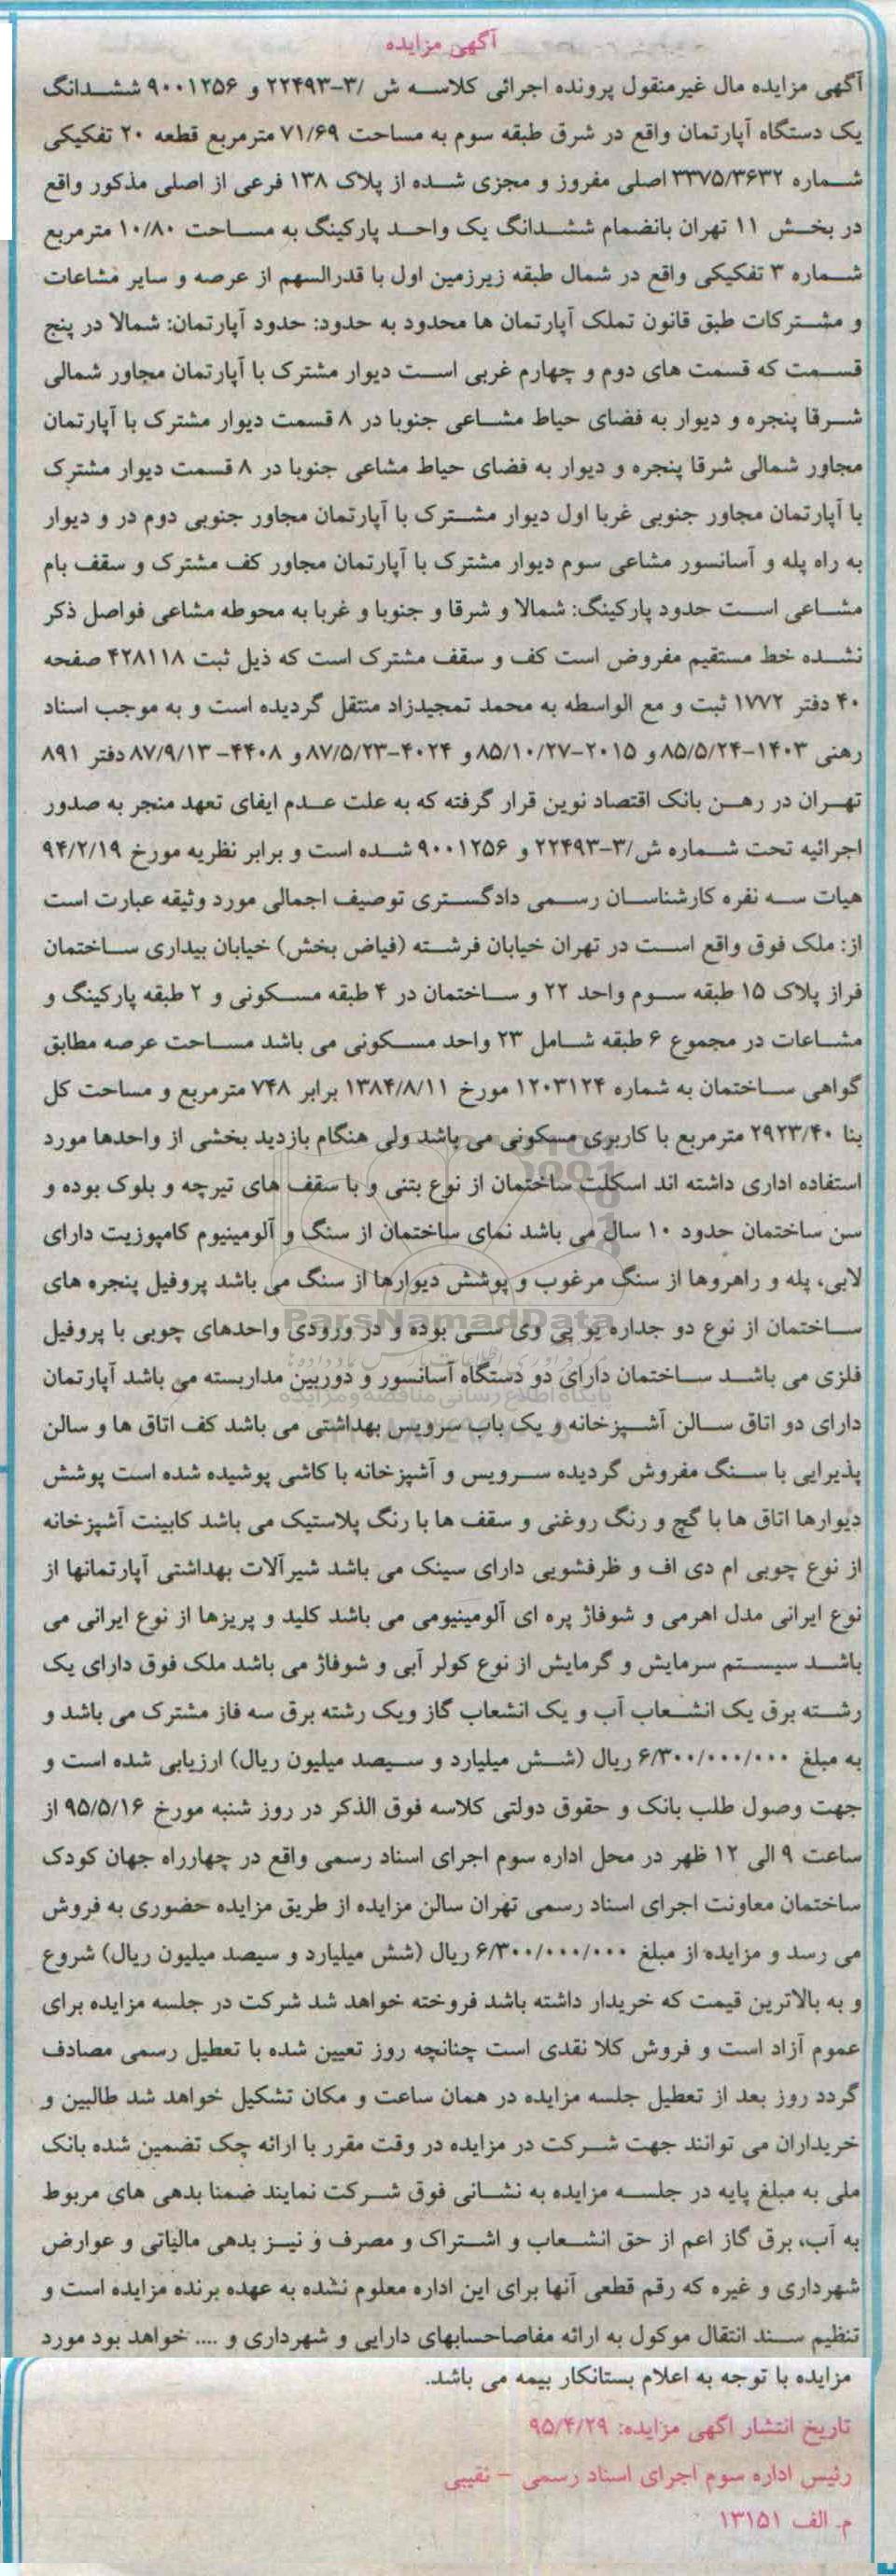 آگهی مزایده
آگهی مزایده مال غیرمنقول پرونده اجرائی کلاسه ش /۳-۲۲۴۹۳ و ۹۰۰۱۲۵۶ ششدانگ
یک دستگاه آپارتمان واقع در شرق طبقه سوم به مساحت ۷۱/۶۹ مترمربع قطعه ۲۰ تفکیکی
شماره ۳۳۷۵/۳۶۳۲ اصلی مفروز و مجزی شده از پلاک ۱۳۸ فرعی از اصلی مذکور واقع
در بخش ۱۱ تهران بانضمام ششدانگ یک واحد پارکینگ به مساحت ۱۰/۸۰ مترمربع
شماره ۳ تفکیکی واقع در شمال طبقه زیرزمین اول با قدرالسهم از عرصه و سایر مشاعات
و مشترکات طبق قانون تملک آپارتمان ها محدود به حدود: حدود آپارتمان: شمالا در پنج
قسمت که قسمت های دوم و چهارم غربی است دیوار مشترک با آپارتمان مجاور شمالی
شرقا پنجره و دیوار به فضای حیاط مشاعی جنوبا در ۸ قسمت دیوار مشترک با آپارتمان
مجاور شمالی شرقا پنجره و دیوار به فضای حیاط مشاعی جنوبا در ۸ قسمت دیوار مشترک
با آپارتمان مجاور جنوبی غربا اول دیوار مشترک با آپارتمان مجاور جنوبی دوم در و دیوار
به راه پله و آسانسور مشاعی سوم دیوار مشترک با آپارتمان مجاور کف مشترک و سقف بام
مشاعی است حدود پارکینگ: شمالا و شرقا و جنوبا و غربا به محوطه مشاعی فواصل ذکر
نشده خط مستقیم مفروض است کف و سقف مشترک است که ذیل ثبت ۴۲۸۱۱۸ صفحه
۴۰ دفتر ۱۷۷۲ ثبت و مع الواسطه به محمد تمجیدزاد منتقل گردیده است و به موجب اسناد
رهنی ۱۴۰۳-۸۵/۵/۲۴ و ۲۰۱۵-۸۵/۱۰/۲۷ و ۴۰۲۴-۸۷/۵/۲۳ و ۴۴۰۸- ۸۷/۹/۱۳ دفتر ۸۹۱
تهران در رهن بانک اقتصاد نوین قرار گرفته که به علت عدم ایفای تعهد منجر به صدور
اجرائیه تحت شماره ش/۳-۲۲۴۹۳ و ۹۰۰۱۲۵۶ شده است و برابر نظریه مورخ ۹۴/۲/۱۹
هیات سه نفره کارشناسان رسمی دادگستری توصیف اجمالی مورد وثیقه عبارت است
از: ملک فوق واقع است در تهران خیابان فرشته (فیاض بخش) خیابان بیداری ساختمان
فراز پلاک ۱۵ طبقه سوم واحد ۲۲ و ساختمان در ۴ طبقه مسکونی و ۲ طبقه پارکینگ و
مشاعات در مجموع ۶ طبقه شامل ۲۳ واحد مسکونی می باشد مساحت عرصه مطابق
گواهی ساختمان به شماره ۱۲۰۳۱۲۴ مورخ ۱۳۸۴/۸/۱۱ برابر ۷۴۸ مترمربع و مساحت کل
بنا ۲۹۲۳/۴۰ مترمربع با کاربری مسکونی می باشد ولی هنگام بازدید بخشی از واحدها مورد
استفاده اداری داشته اند اسکلت ساختمان از نوع بتنی و با سقف های تیرچه و بلوک بوده و
سن ساختمان حدود ۱۰ سال می باشد نمای ساختمان از سنگ و آلومینیوم کامپوزیت دارای
لابی، پله و راهروها از سنگ مرغوب و پوشش دیوارها از سنگ می باشد پروفیل پنجره های
ParsNamadData
ساختمان از نوع دو جداره یو پی وی سی بوده و در ورودی واحدهای چوبی با پروفیل
فلزی می باشد ساختمان دارای دو دستگاه آسانسور و دوربین مداربسته می باشد آپارتمان
پایگاه اطلاع رسانی مناقصه و مزایده
دارای دو اتاق سالن آشپزخانه و یک باب سرویس بهداشتی می باشد کف اتاق ها و سالن
پذیرایی با سنگ مفروش گردیده سرویس و آشپزخانه با کاشی پوشیده شده است پوشش
دیوارها اتاق ها با گچ و رنگ روغنی و سقف ها با رنگ پلاستیک می باشد کابینت آشپزخانه
از نوع چوبی ام دی اف و ظرفشویی دارای سینک می باشد شیرآلات بهداشتی آپارتمانها از
نوع ایرانی مدل اهرمی و شوفاژ پره ای آلومینیومی می باشد کلید و پریزها از نوع ایرانی می
باشد سیستم سرمایش و گرمایش از نوع کولر آبی و شوفاژ می باشد ملک فوق دارای یک
رشته برق یک انشعاب آب و یک انشعاب گاز ویک رشته برق سه فاز مشترک می باشد و
به مبلغ ۶/۳۰۰/۰۰۰/۰۰۰ ریال (شش میلیارد و سیصد میلیون ریال) ارزیابی شده است و
جهت وصول طلب بانک و حقوق دولتی کلاسه فوق الذکر در روز شنبه مورخ ۹۵/۵/۱۶ از
ساعت ۹ الی ۱۲ ظهر در محل اداره سوم اجرای اسناد رسمی واقع در چهارراه جهان کودک
ساختمان معاونت اجرای اسناد رسمی تهران سالن مزایده از طریق مزایده حضوری به فروش
می رسد و مزایده از مبلغ ۶/۳۰۰/۰۰۰/۰۰۰ ریال (شش میلیارد و سیصد میلیون ریال) شروع
و به بالاترین قیمت که خریدار داشته باشد فروخته خواهد شد شرکت در جلسه مزایده برای
عموم آزاد است و فروش کلا نقدی است چنانچه روز تعیین شده با تعطیل رسمی مصادف
گردد روز بعد از تعطیل جلسه مزایده در همان ساعت و مکان تشکیل خواهد شد طالبین و
خریداران می توانند جهت شرکت در مزایده در وقت مقرر با ارائه چک تضمین شده بانک
ملی به مبلغ پایه در جلسه مزایده به نشانی فوق شرکت نمایند ضمنا بدهی های مربوط
به آب، برق گاز اعم از حق انشعاب و اشتراک و مصرف و نیز بدهی مالیاتی و عوارض
شهرداری و غیره که رقم قطعی آنها برای این اداره معلوم نشده به عهده برنده مزایده است و
تنظیم سند انتقال موکول به ارائه مفاصاحسابهای دارایی و شهرداری و .... خواهد بود مورد
مزایده با توجه به اعلام بستانکار بیمه می باشد.
تاریخ انتشار اگهی مزایده: ۹۵/۴/۲۹
رئیس اداره سوم اجرای اسناد رسمی – نقیبی
م. الف ۱۳۱۵۱